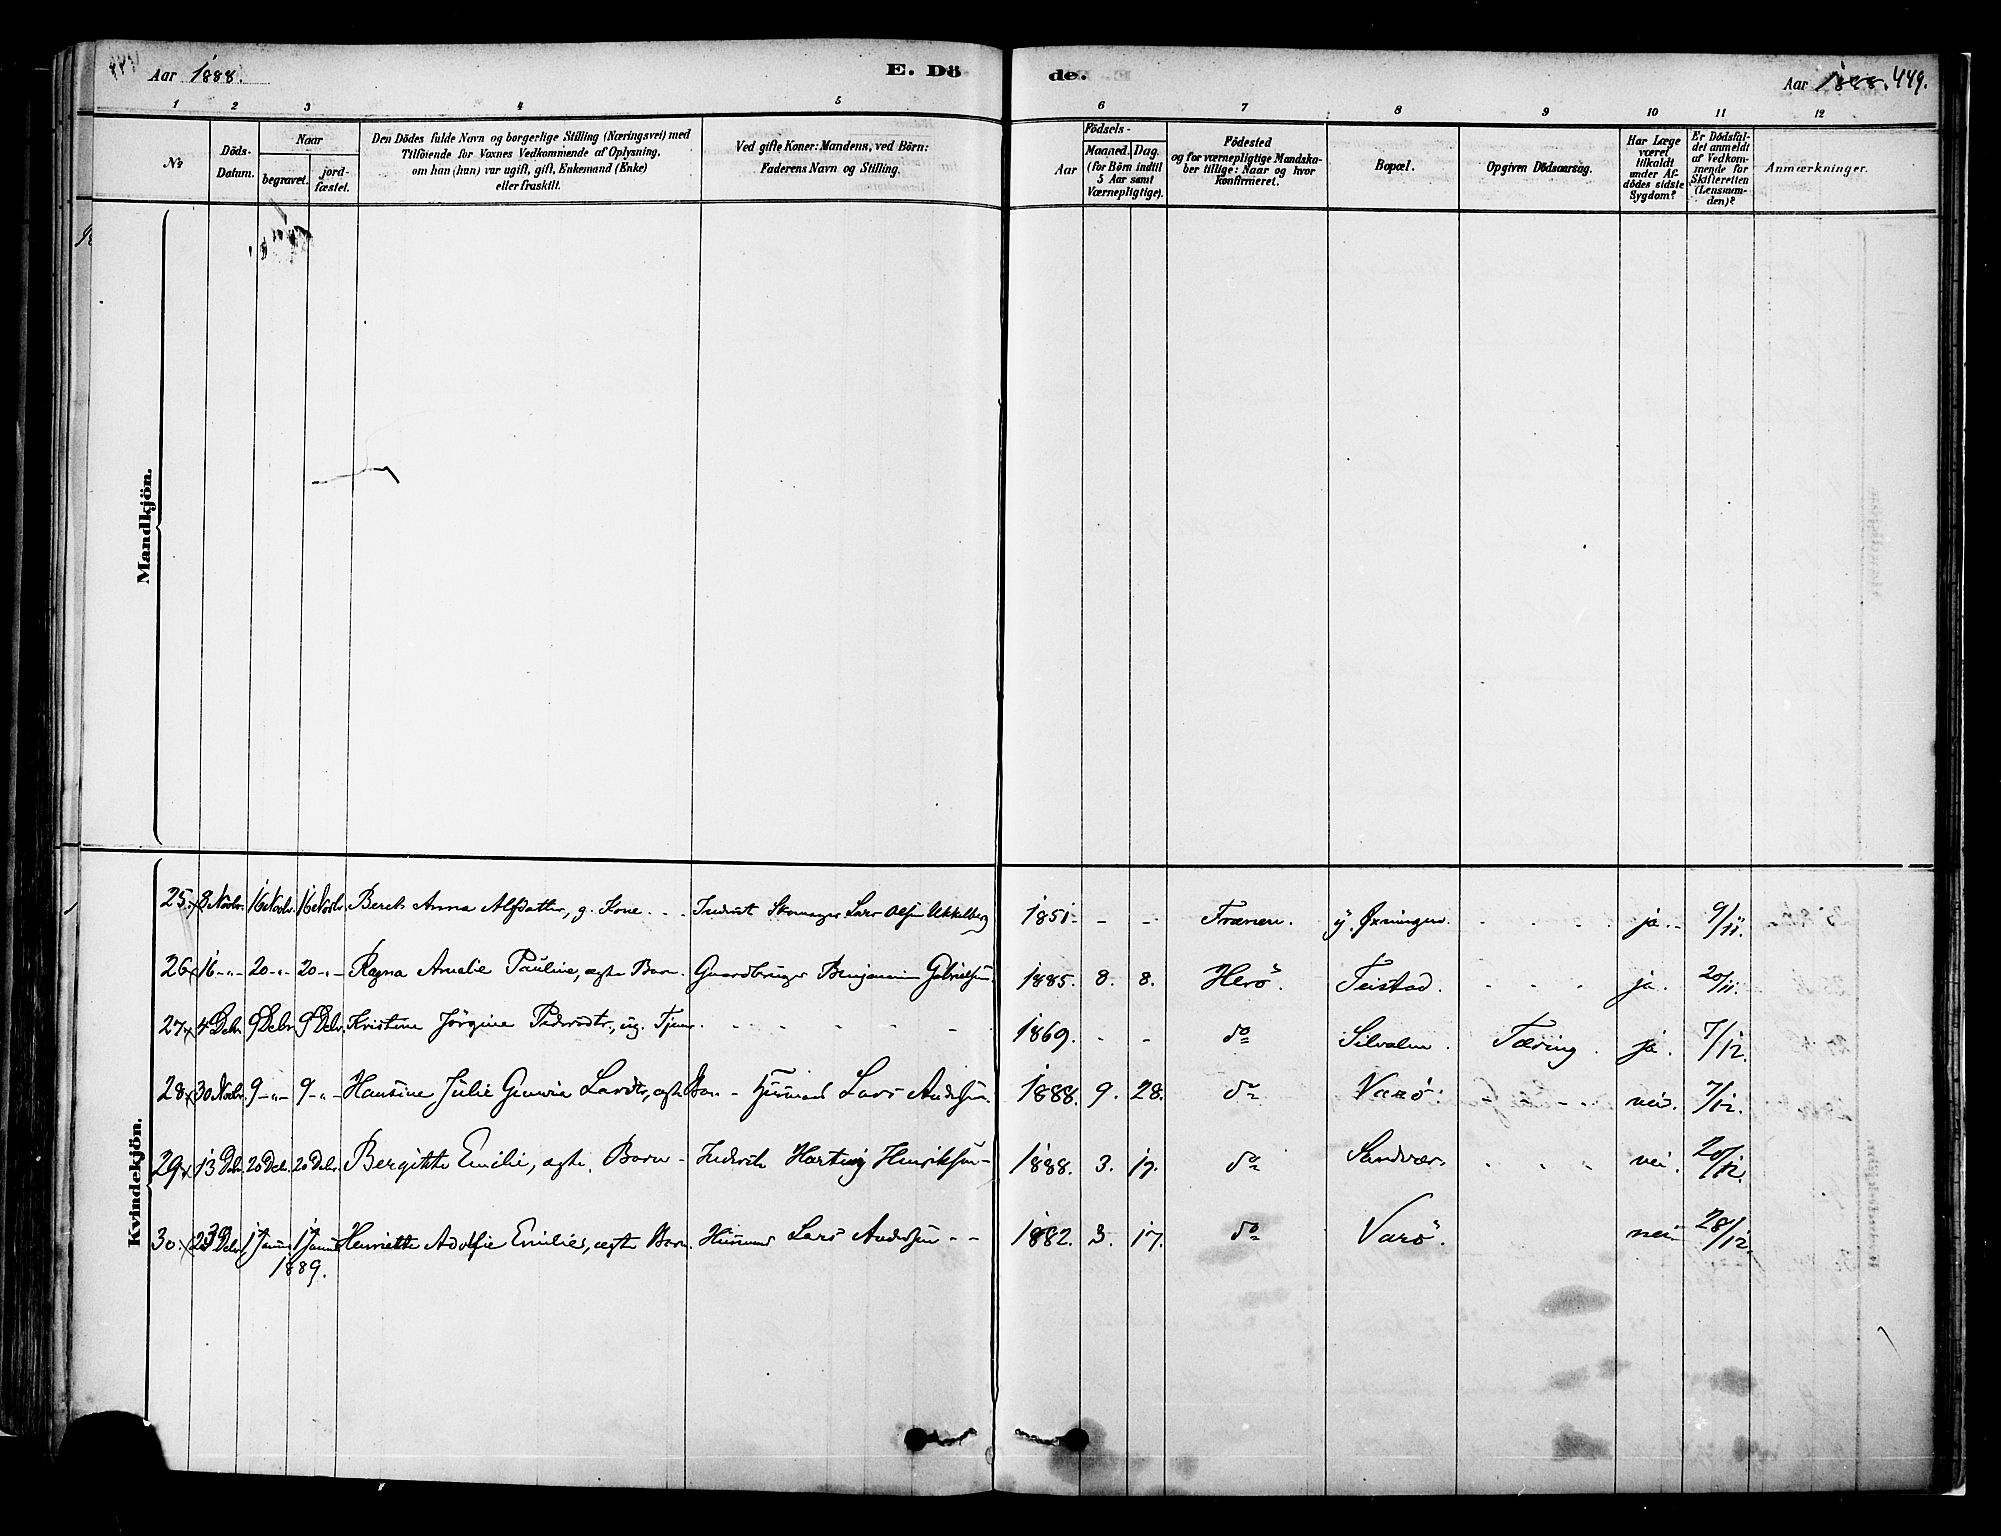 Aar 1888. E. Dö de. Aar 1888. 449.
1 2 3 4 5 6 7 8 9 10 11 12
No
Döds-Datum.
Naar
begravet. jord-fæstet.
Den Dödes fulde Navn og borgerlige Stilling (Næringsvei) med
Tilföiende for Voxnes Vedkommende af Oplysning,
om han (hun) var ugift, gift, Enkemand (Enke)
eller fraskilt.
Ved gifte Koner: Mandens, ved Börn:
Faderens Navn og Stilling.
Födsels-
Aar Maaned. Dag.
(for Börn indtil
5 Aar samt
Værnepligtige).
Födested
og for værnepligtige Mandska-
ber tillige: Naar og hvor
Konfirmeret.
Bopæl.
Opgiven Dödsaarsag.
Har Læge
været
tilkaldt
under Af-
dödes sidste
Sygdom?
Er Dödsfal-
det anmeldt
af Vedkom-
mende for
Skifteretten
(Lensman-
den)?
Anmærkninger.
Mandkjön.
Kvindekjön.
25. 8 Novbr. 16 Novbr. 16 Novbr. Anna g. Kone Lars Olsen 1851 - - Trænen. ja. 9/11.
26 16 -"- 20 -"- 20 -"- Ragna Amalie Pauline, ægte Barn. Gaardbruger Benjamin 1885. 8. 8. Herö. Teistad. ja. 20/11.
27 4 Debr. 9 Debr. 9 Debr. Kristine Jörgine ug. 1869. - - do Silvalen. Tæring. ja. 7/12.
28 30 Novbr. 9 -"- 9 -"- Hansine Julie ægte Lars Andersen. 1888. 9. 28. do Varö. nei. 7/12.
29 13 Debr. 20 Debr. 20 Debr. Bergitte Emilie, ægte Barn - Inderst Harting Henriksen - 1888. 3. do Sandvær. nei. 20/12.
30. 23 Debr. 1 Januar 1 Januar Henriette Adolfie Emilie, ægte Barn. Husmand Lars Andersen - - 1882. 3. 17. do Varö. nei 28/12.
1889.